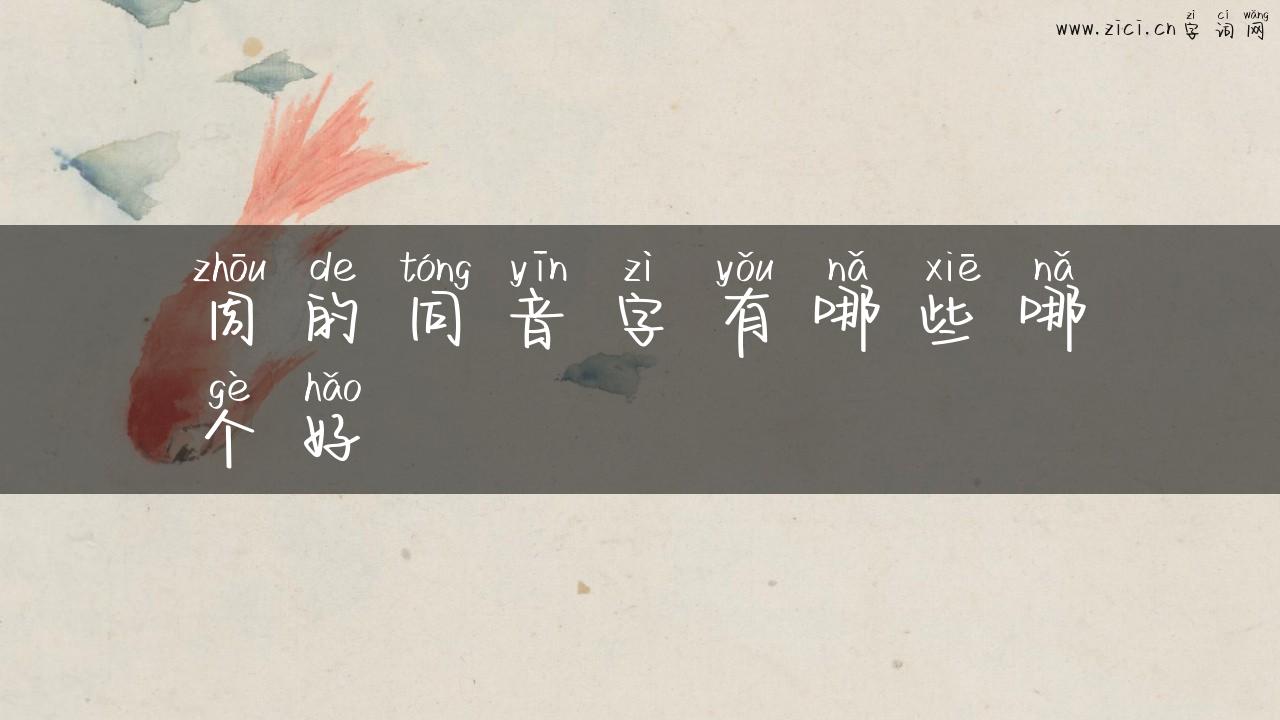 zì cí wǎng
www.zici.cn 字词网
zhōu de tóng yīn zì yǒu nǎ xiē nǎ
周的同音字有哪些哪
gè hǎo
个好